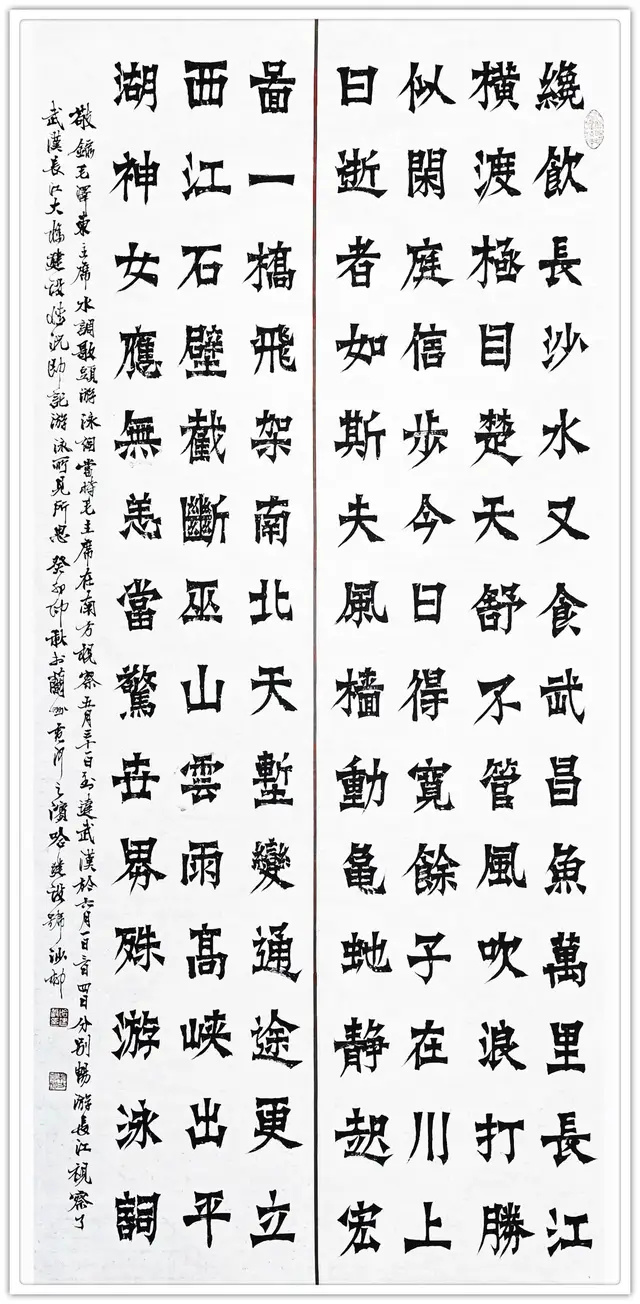 纔飲長沙水又食武昌魚萬里長江
橫渡極目楚天舒不管風吹浪打勝
似閑庭信步今日得寬餘子在川上
曰逝者如斯夫風檣動龜虵静起宏
啚一橋飛架南北天塹變通途更立
西江石壁截斷巫山雲雨高峽出平
湖神女應無恙當驚世界殊游泳詞
敬錄毛澤東主席水調歌頭游泳詞當時毛主席在南方視察五月三十一日到達武漢於六月一日三日四日分别暢游長江視察了
武漢長江大橋建設情況即記游泳所見所思癸卯仲秋於蘭州黄河之濱哈建設號汕邨